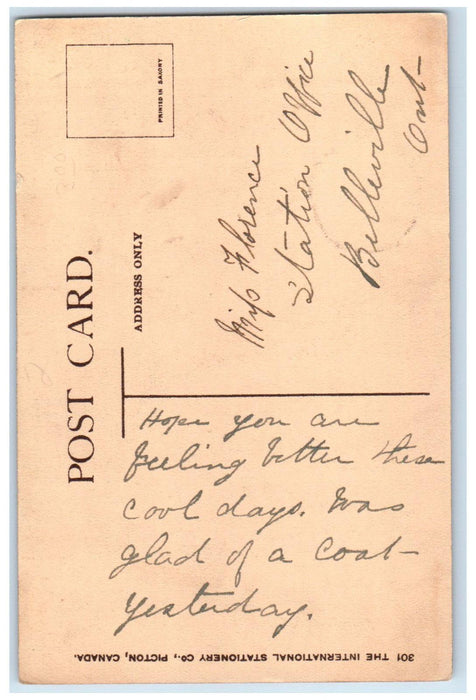 POST CARD.
ADDRESS ONLY
PRINTED IN SAXONY
Miss Florence
Station Office
Belleville
Ont-
Hope you are
feeling better these
cool days. Was
glad of a coat
yesterday.
301 THE INTERNATIONAL STATIONERY CO., PICTON, CANADA.